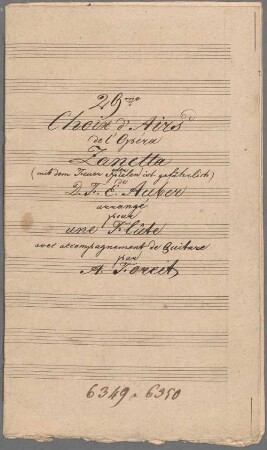 29me
Choix d'Airs
de l'Opéra
Zanetta
oder
(mit dem Feuer Spielen ist gefährlich)
de
D. F. E. Auber
arrangé
pour
une Flûte
avec accompagnement de Guitare
par
A. Foreit
6349 - 6350